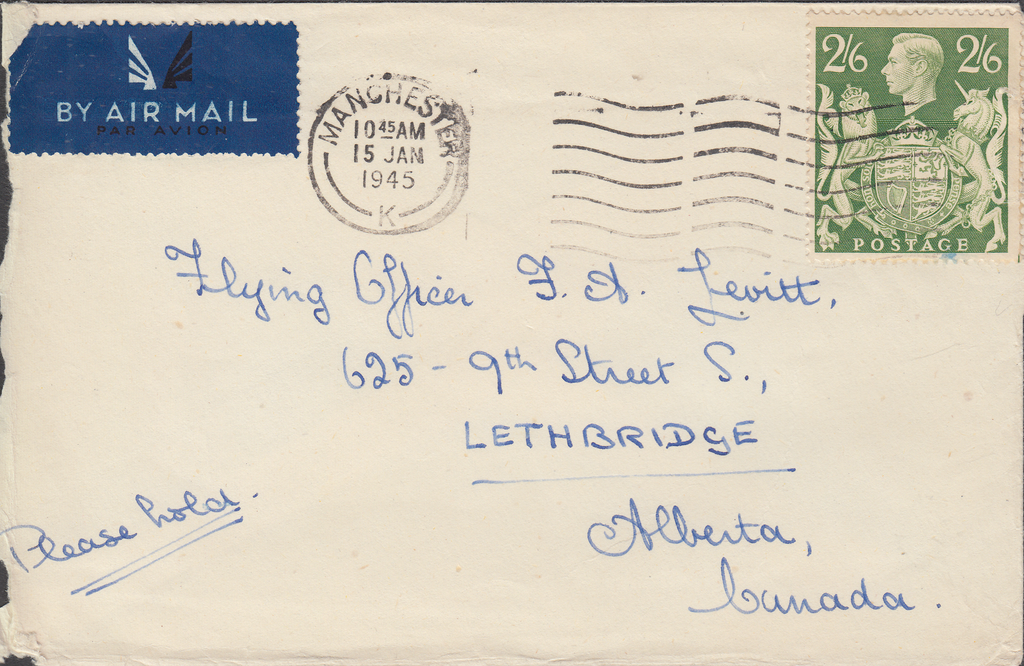 BY AIR MAIL
PAR AVION
MANCHESTER
10 45 AM
15 JAN
1945
K
2/6 2/6
POSTAGE
Flying Officer F. A. Levitt,
625 - 9th Street S.,
LETHBRIDGE
Alberta,
Canada.
Please hold.